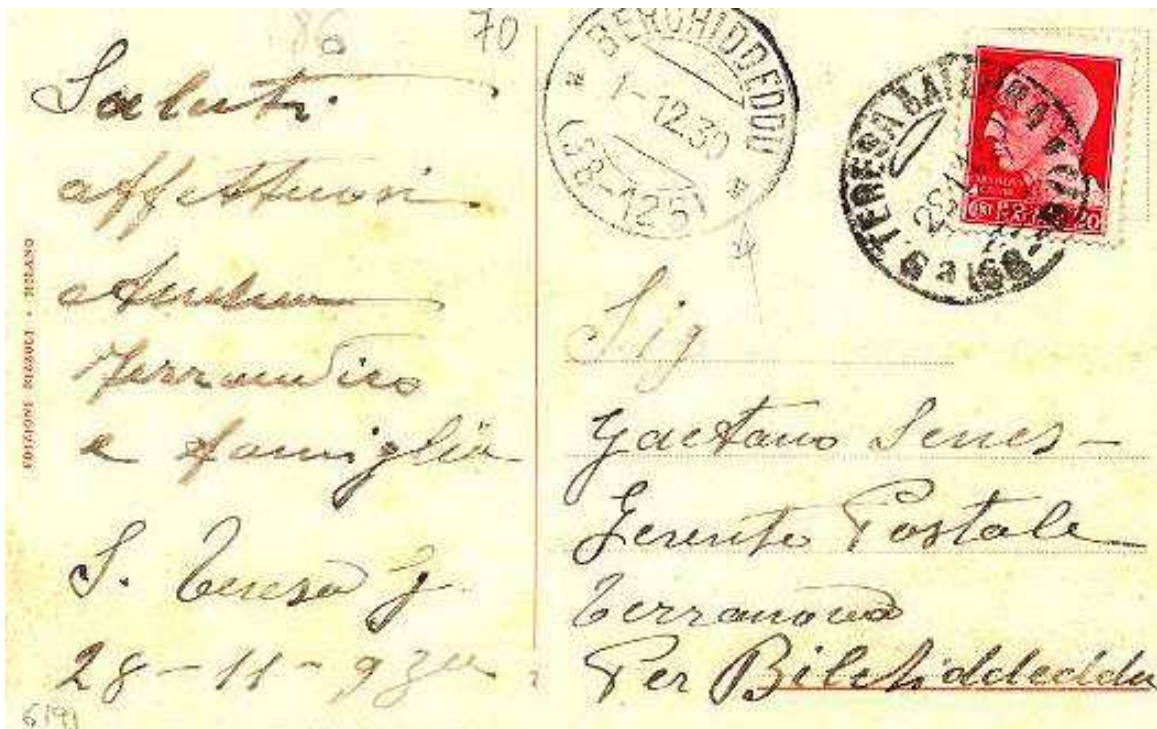 86 70
Saluti
affettuosi
Andrea
e famiglia
S. Teresa G.
28-11-930
6191
BERCHIDDEDDU
1-12.30
(38-125)
S. TERESA GALLURA
28.11
Sig
Gaetano Senes -
Gerente Postale
Terranova
Per Bilchiddeddu